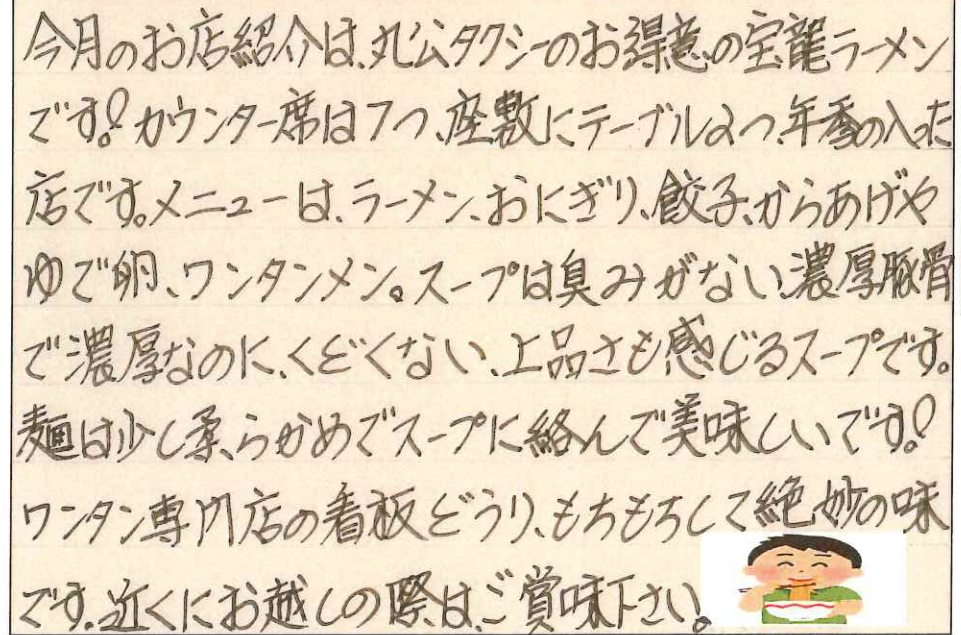 今月のお店紹介は、丸公タクシーのお得意の宝龍ラーメン
です!カウンター席は7つ、座敷にテーブル2つ、年季の入った
店です。メニューは、ラーメン、おにぎり、餃子、からあげや
ゆで卵、ワンタンメン。スープは臭みがない、濃厚豚骨
で濃厚なのに、くどくない、上品さも感じるスープです。
麺は少し柔らかめでスープに絡んで美味しいです!
ワンタン専門店の看板どうり、もちもちして絶妙の味
です。近くにお越しの際は、ご賞味下さい。